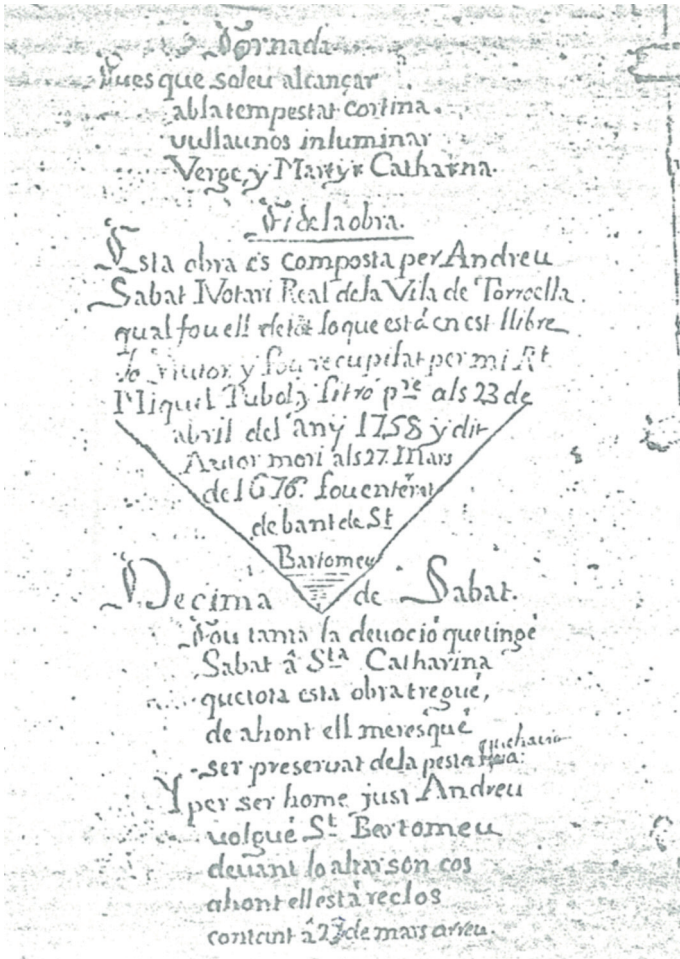 Tornada
Pues que soleu alcançar
ab la tempestat cortina.
vullau nos inluminar
Verge, y Martyr Catharna.
Fi de la obra.
Esta obra es composta per Andreu
Sabat Notari Real de la Vila de Torroella.
qual fou ell de tot lo que está en est llibre
lo Autor y fou recupilat per mi Rt
Miquel Pubol y pre als 23 de
abril del any 1758 y dit
Autor mori als 27 Mars
de 1676. fou enterat
de bant de St
Bartomeu
Decima de Sabat.
Fou tanta la devoció que tingé
Sabat â Sta Catharina
que tota esta obra tregué,
de ahont ell meresqué
ser preservat de la pesta que havia
Y per ser home just Andreu
volgué St Bertomeu
devant lo altar son cos
ahont ell está reclos
contant â 27 de mars arreu.